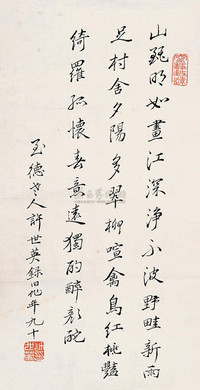 山甎明如畫江深淨不波野畦新雨
足村舍夕陽多翠柳喧禽鳥紅桃豔
綺羅孤懷春意遠獨酌醉顏酡
至德老人許世英錄舊作年九十